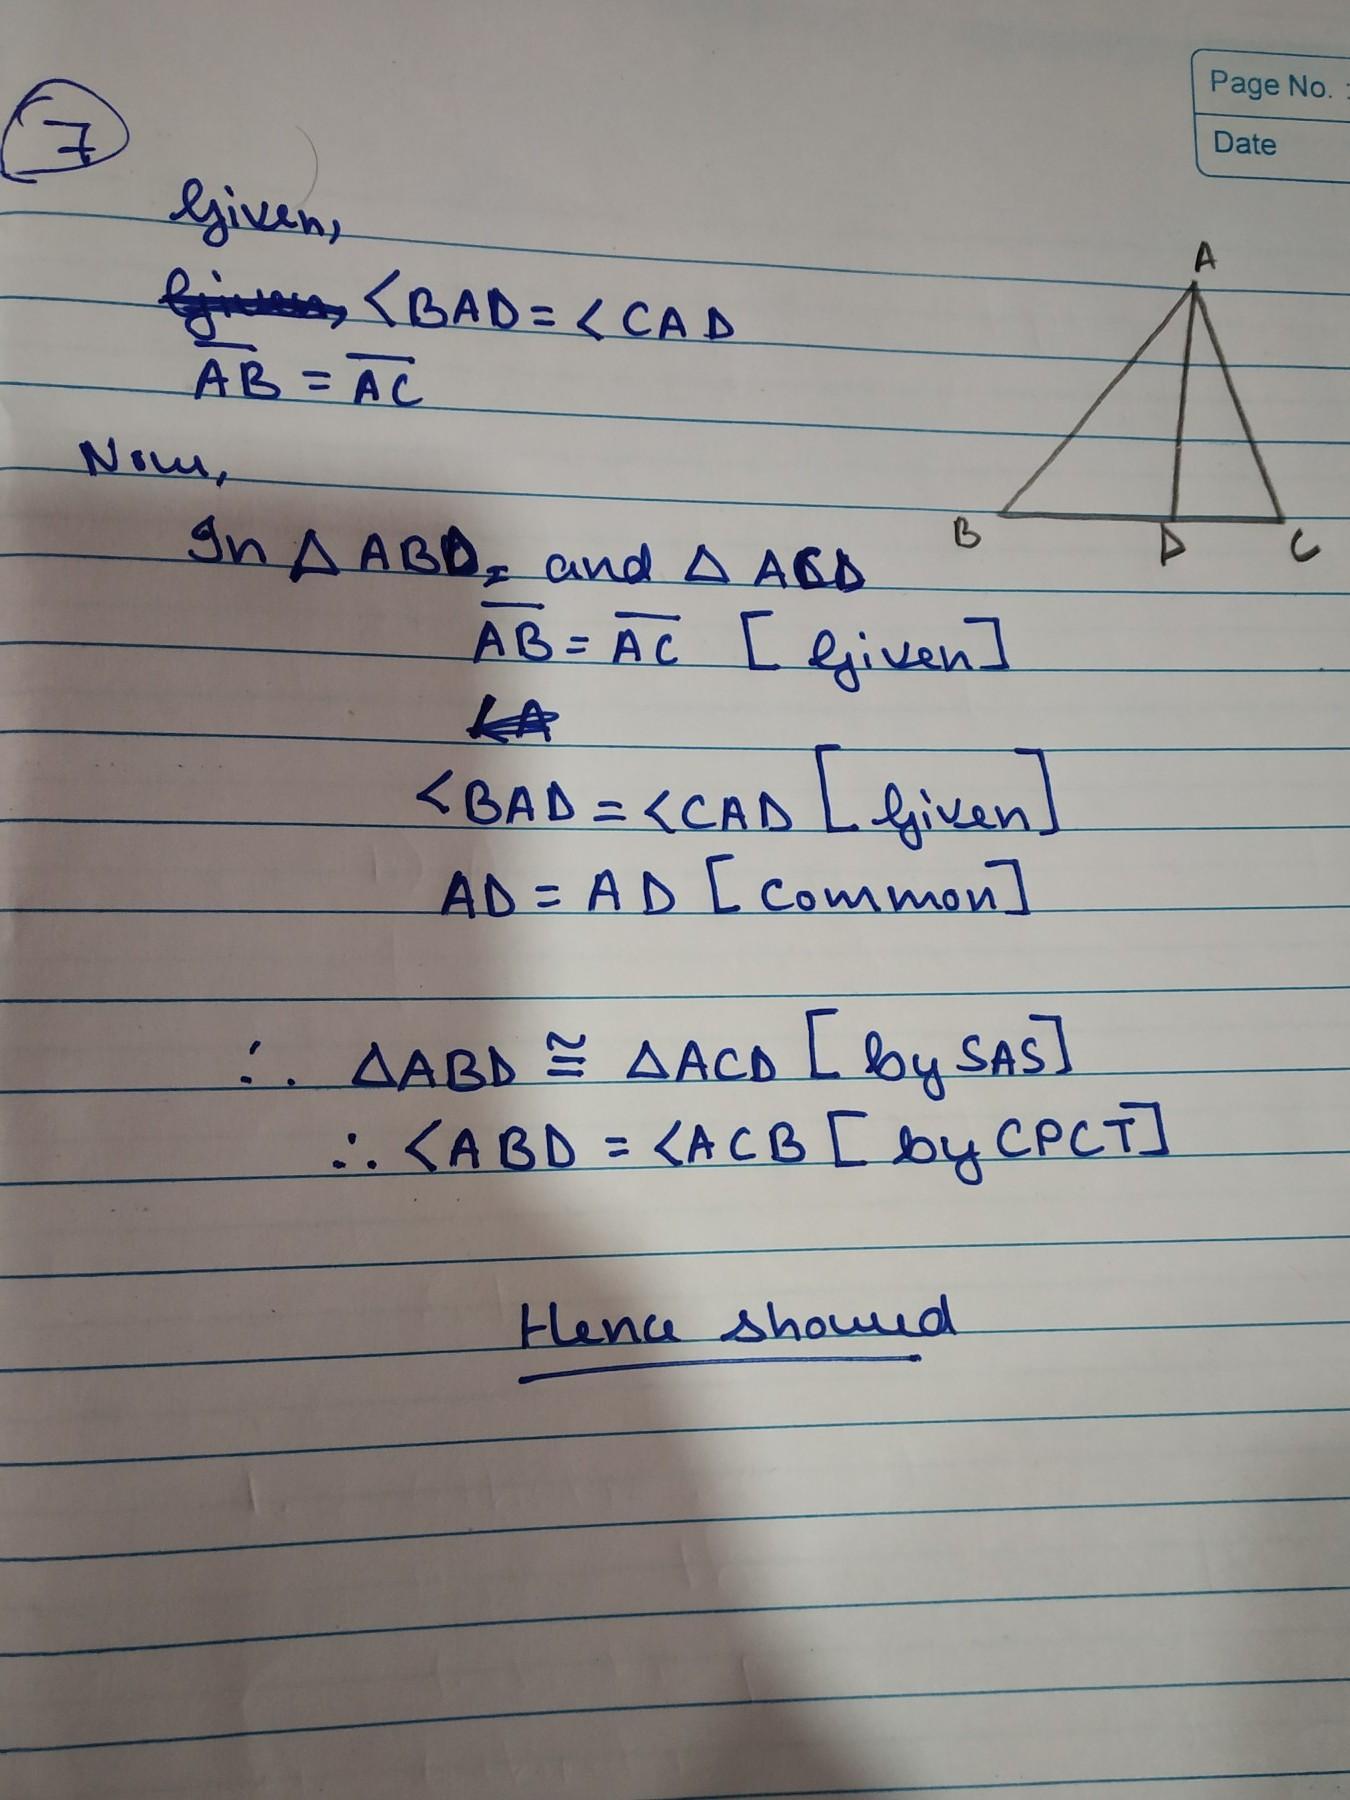 Page No. :
Date
7
Given,
Given, <BAD = <CAD
AB = AC
Now,
In △ ABD, and △ ACD
AB = AC [Given]
<A
<BAD = <CAD [Given]
AD = AD [Common]
∴ △ABD ≅ △ACD [by SAS]
∴ <ABD = <ACB [by CPCT]
Hence showed
A
B D C